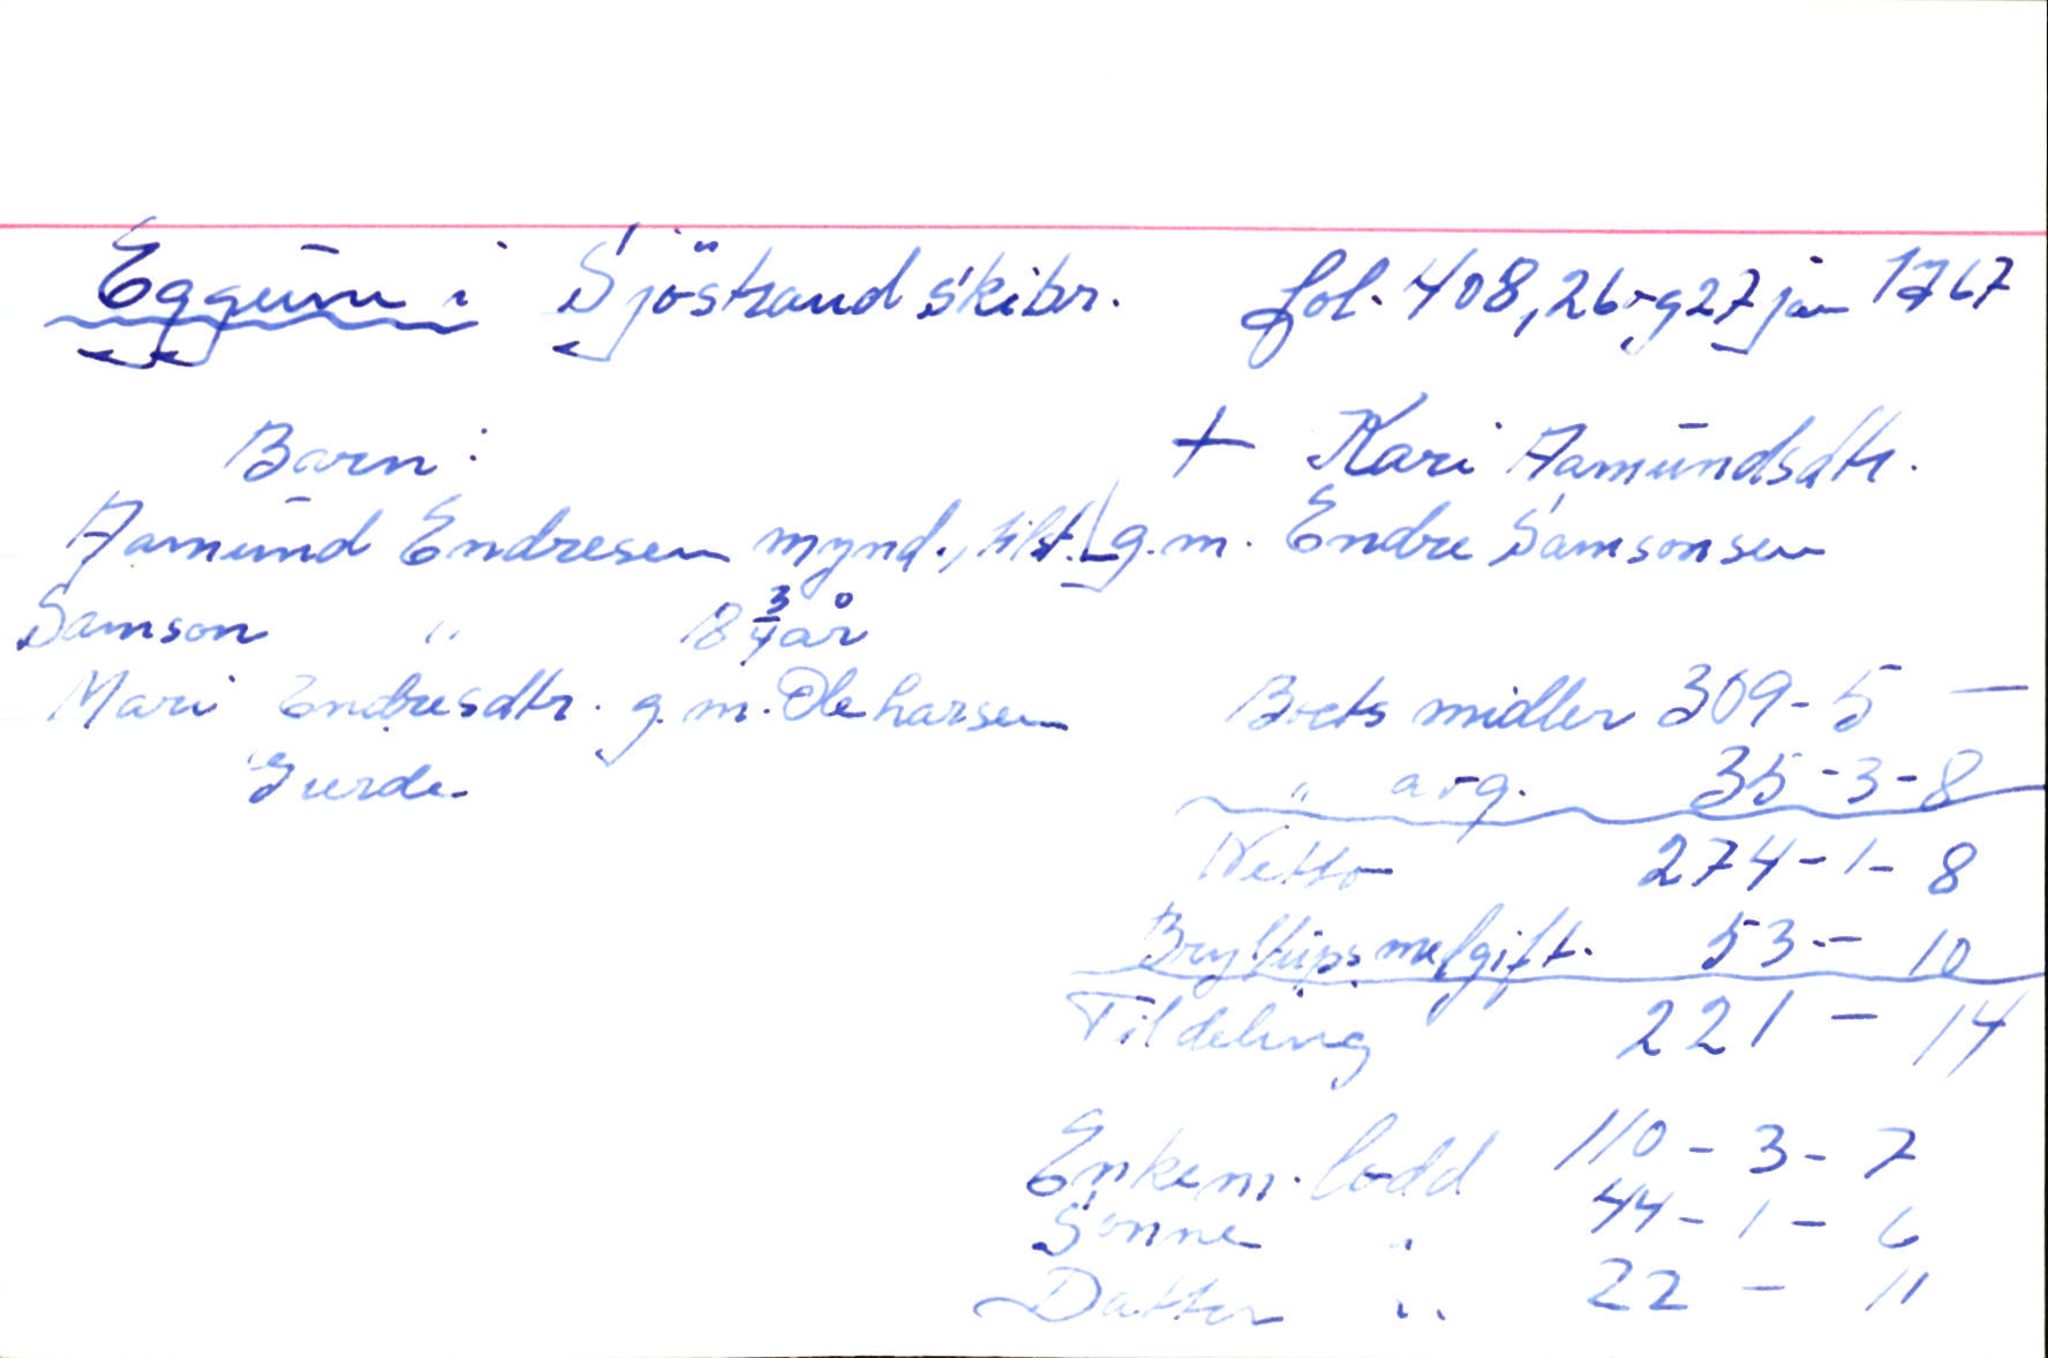 Eggum i Sjöstrand skibr. fol. 408, 26 og 27 jan 1767
Barn: + Kari Aamundsdtr.
Aamund Endresen mynd., tilst. g.m. Endre Samsonsen
Samson " 18 3/4 år
Mari Endresdtr. g.m. Ole Larsen
Gurde
Boets midler 309-5 —
" a og. 35-3-8
Netto 274-1-8
Bryllups medgift. 53-- 10
Til deling 221 — 14
Enkem. lodd 110-3-7
Sønne " 44-1-6
Datter " 22 — 11